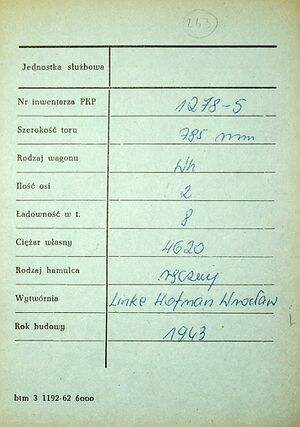 243
Jednostka służbowa
Nr inwentarza PKP 1278-5
Szerokość toru 785 mm
Rodzaj wagonu Wh
Ilość osi 2
Ładowność w t. 8
Ciężar własny 4620
Rodzaj hamulca ręczny
Wytwórnia Linke Hofman Wrocław
Rok budowy 1943
btm 3 1192-62 6000